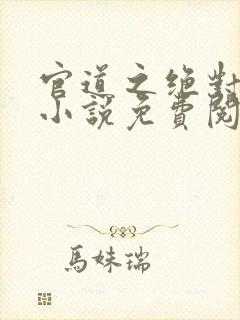 官道之绝對
小說免費閱
馬妹瑞